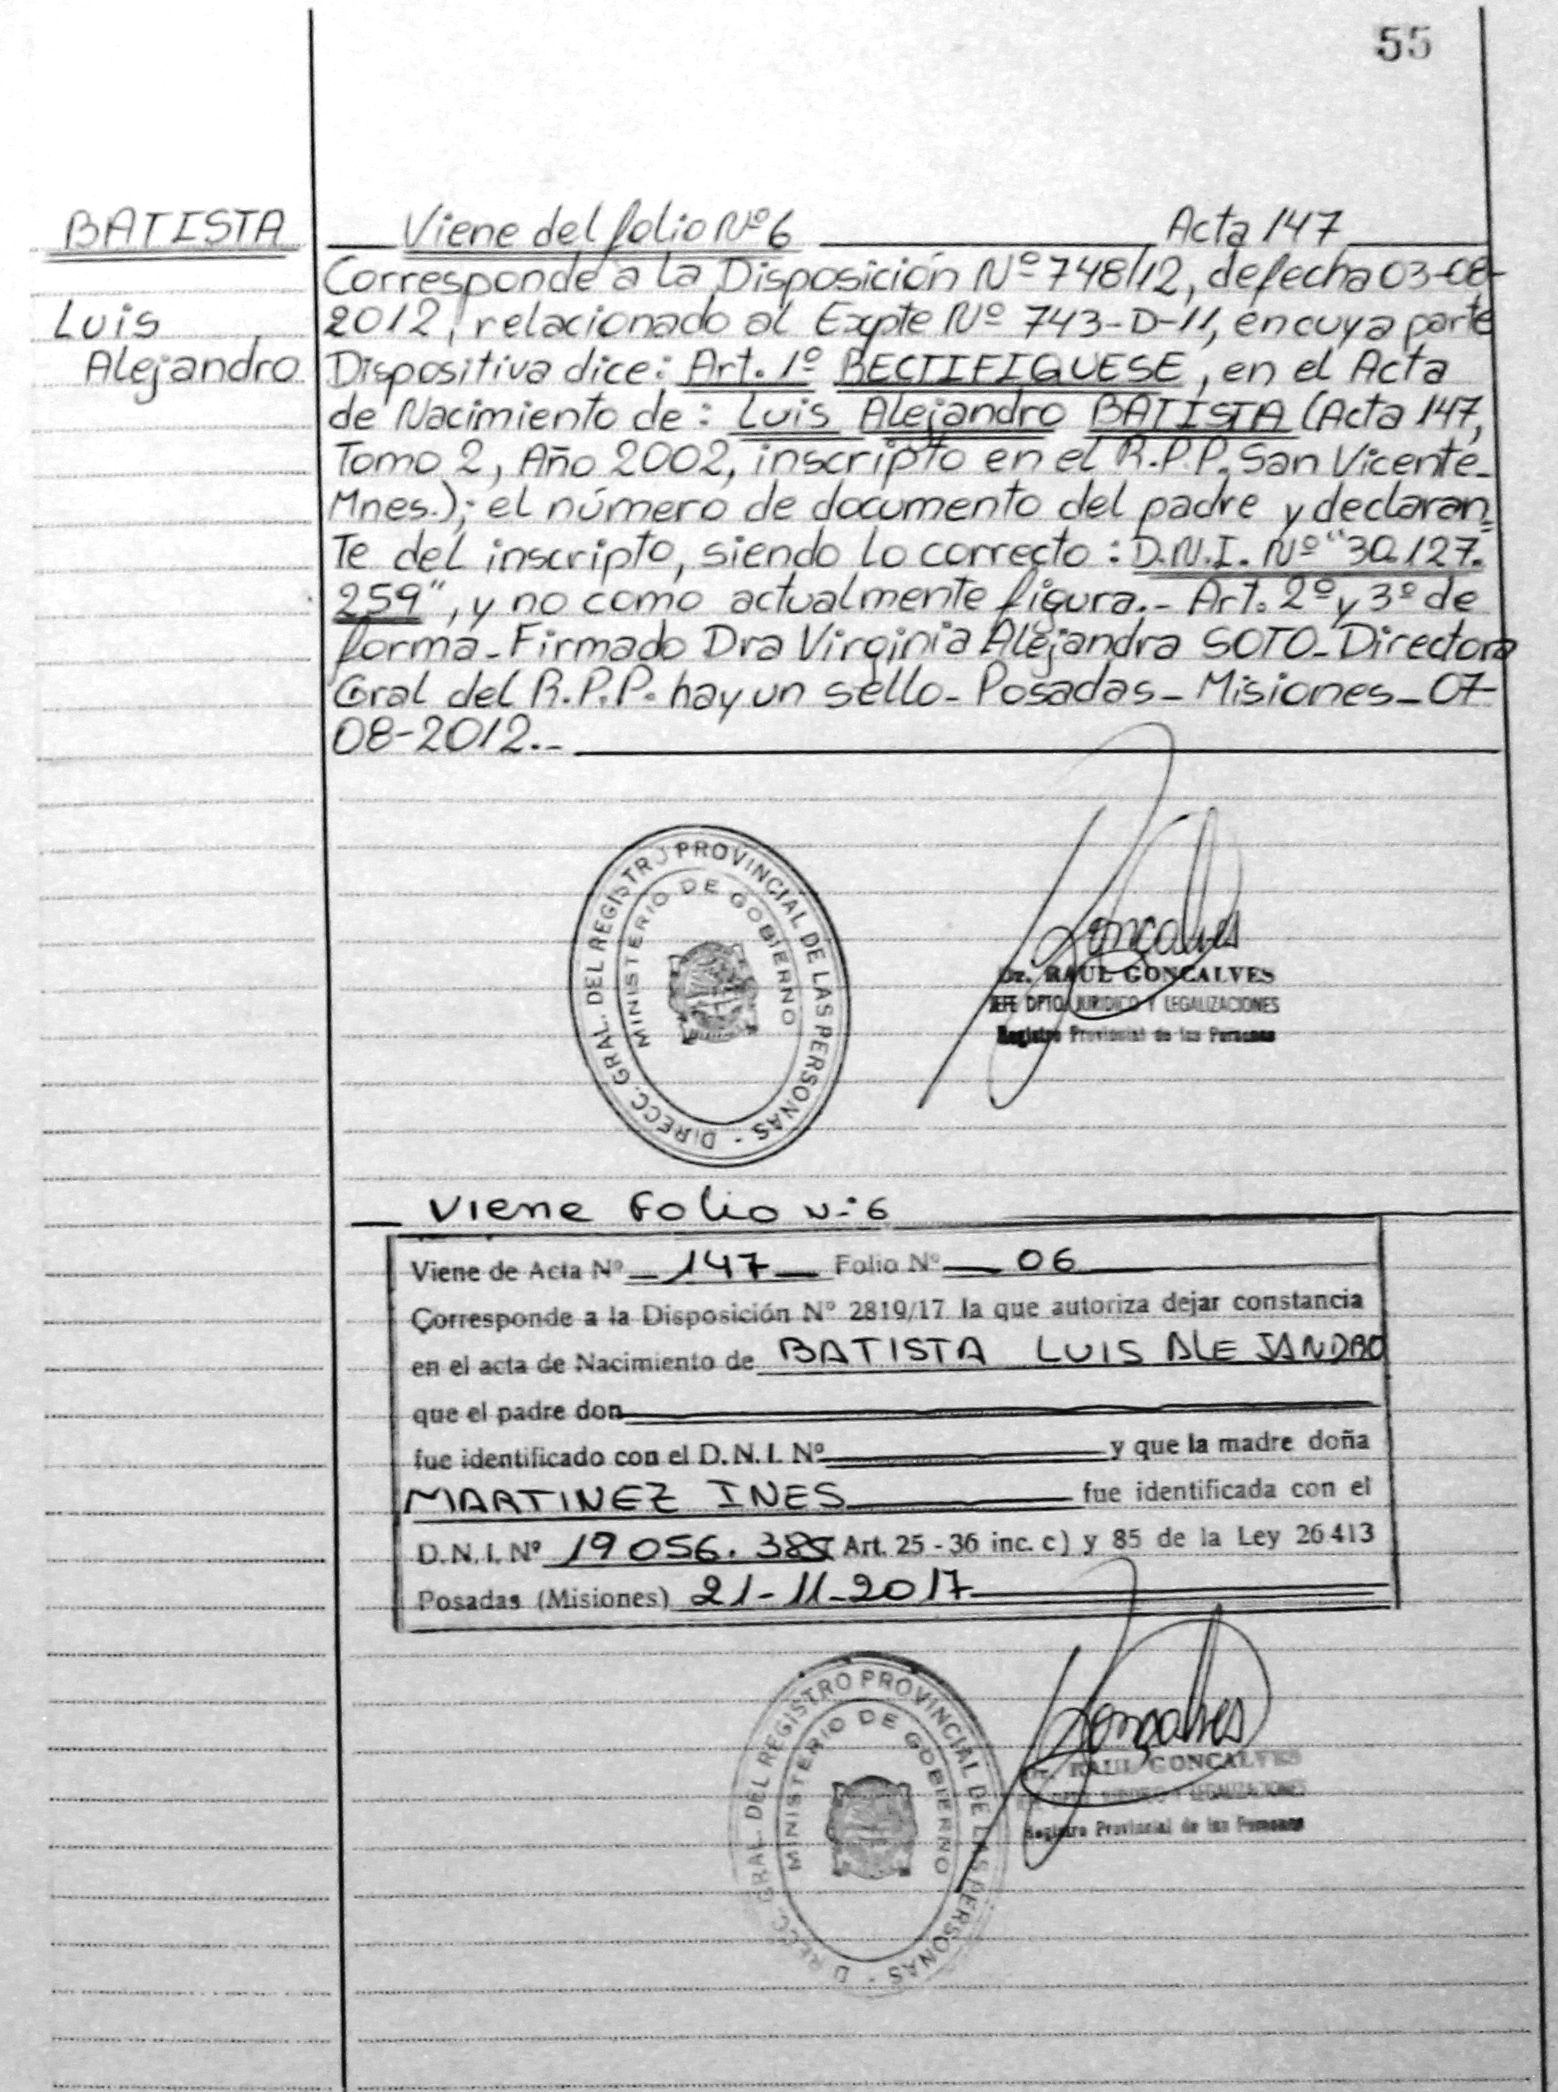 55
BATISTA
Luis
Alejandro
Viene del folio Nº 6 Acta 147
Corresponde a la Disposición Nº 748/12, de fecha 03-08-
2012, relacionado al Expte Nº 743-D-11, en cuya parte
Dispositiva dice: Art. 1º RECTIFIQUESE, en el Acta
de Nacimiento de: Luis Alejandro BATISTA (Acta 147,
Tomo 2, Año 2002, inscripto en el R.P.P. San Vicente-
Mnes.); el número de documento del padre y declaran=
te del inscripto, siendo lo correcto: D.N.I. Nº "30.127.
259", y no como actualmente figura.- Art. 2º y 3º de
forma-Firmado Dra Virginia Alejandra SOTO-Directora
Gral del R.P.P. hay un sello- Posadas- Misiones- 07-
08-2012.-
DIRECC. GRAL. DEL REGISTRO PROVINCIAL DE LAS PERSONAS -
MINISTERIO DE GOBIERNO
Gonçalves
Dr. RAUL GONCALVES
JEFE DPTO. JURIDICO Y LEGALIZACIONES
Registro Provincial de las Personas
Viene Folio Nº 6
Viene de Acta Nº 147 Folio Nº 06
Corresponde a la Disposición Nº 2819/17 la que autoriza dejar constancia
en el acta de Nacimiento de BATISTA LUIS ALEJANDRO
que el padre don
fue identificado con el D.N.I. Nº y que la madre doña
MARTINEZ INES fue identificada con el
D.N.I. Nº 19056.385 Art. 25 - 36 inc. c) y 85 de la Ley 26413
Posadas (Misiones) 21-11-2017
DIRECC. GRAL. DEL REGISTRO PROVINCIAL DE LAS PERSONAS -
MINISTERIO DE GOBIERNO
Gonçalves
Dr. RAUL GONCALVES
JEFE DPTO. JURIDICO Y LEGALIZACIONES
Registro Provincial de las Personas